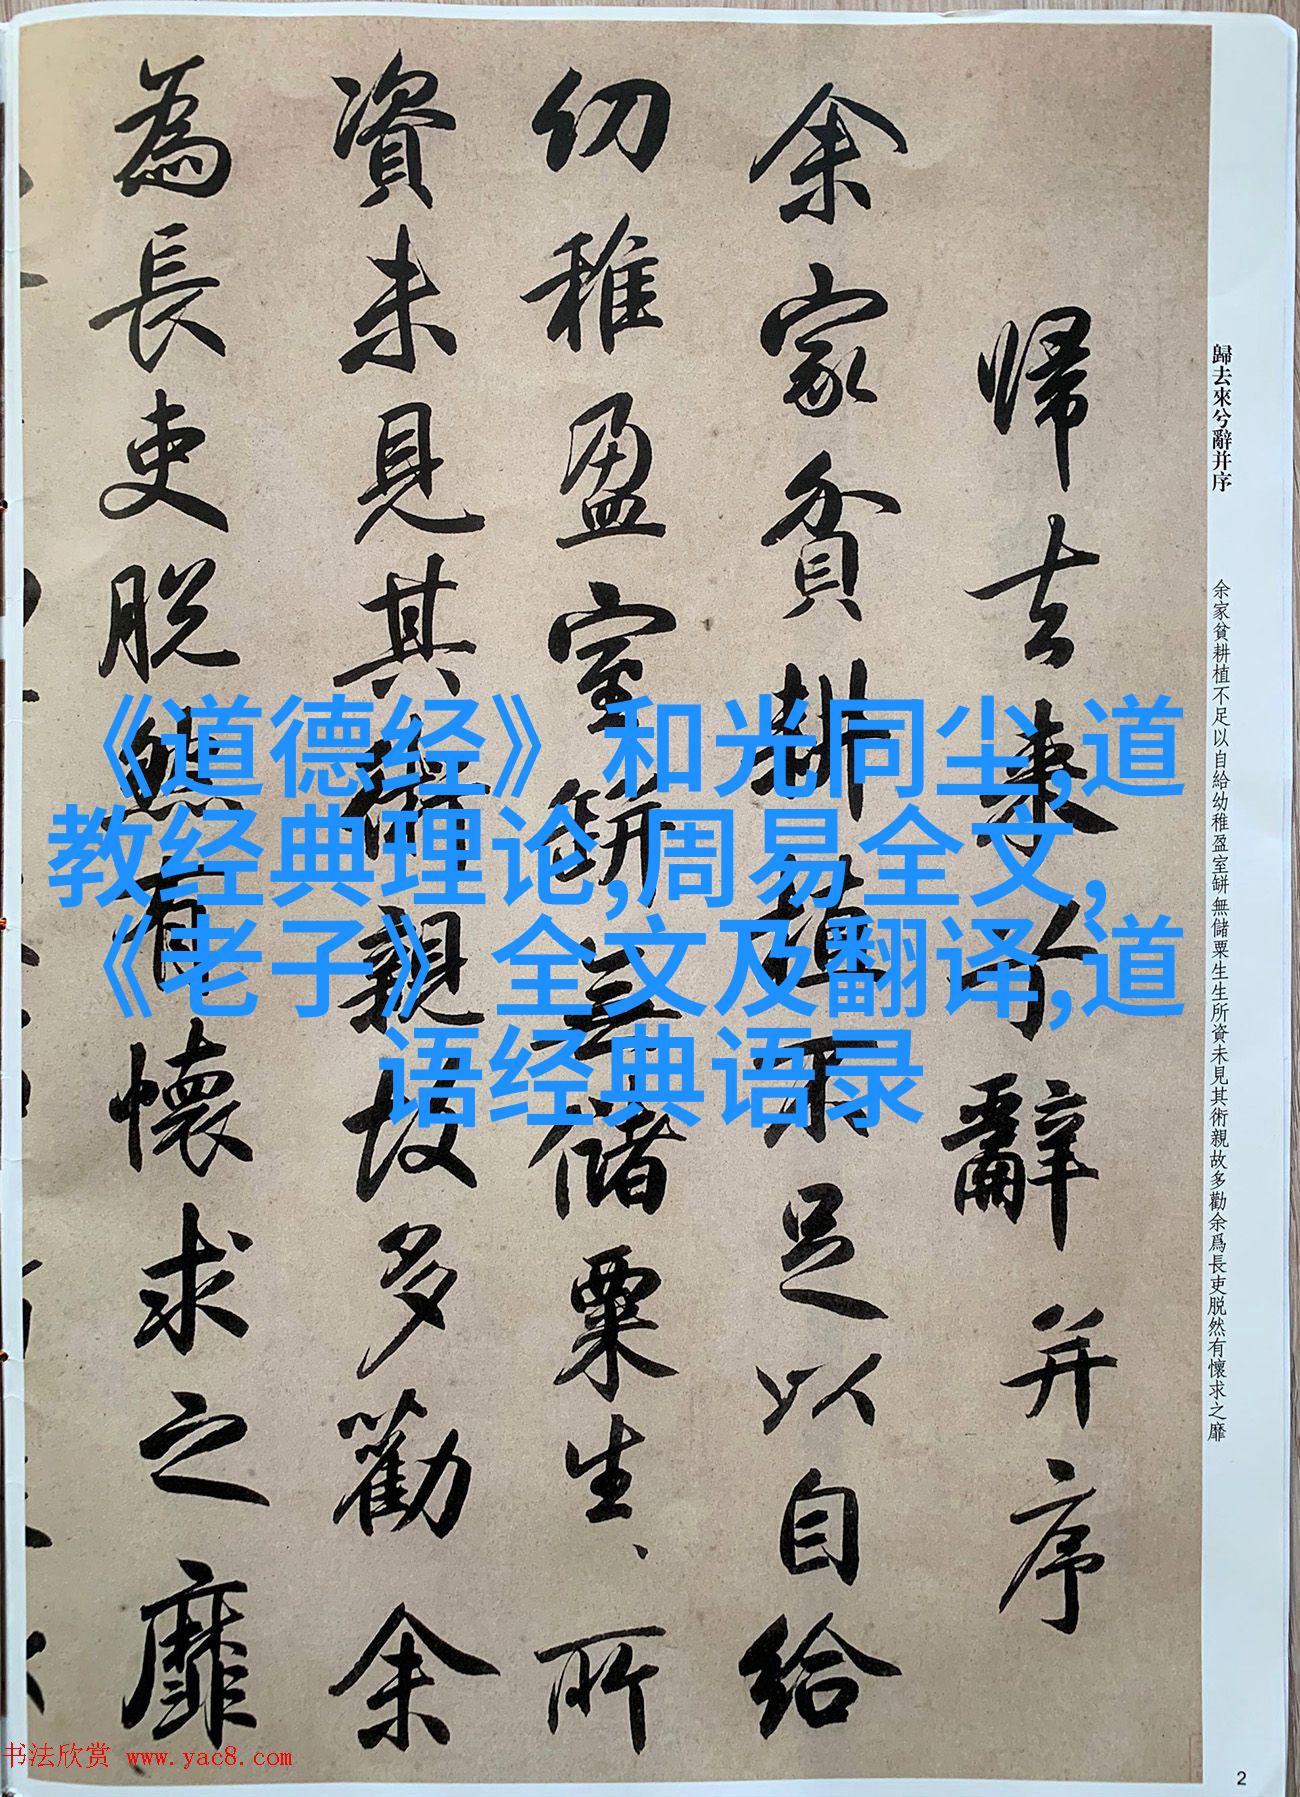 歸去來兮辭并序
余家貧耕植不足以自給幼稚盈室缾無儲粟生生所資未見其術親故多勸余爲長吏脱然有懷求之靡
歸去來兮辭并序
余家貧耕植不足以自給
幼稚盈室缾無儲粟生、所
資未見其術親故多勸余
為長吏脱然有懷求之靡
《道德经》和光同尘,道
教经典理论,周易全文,
《老子》全文及翻译,道
语经典语录
书法欣赏 www.yac8.com
2